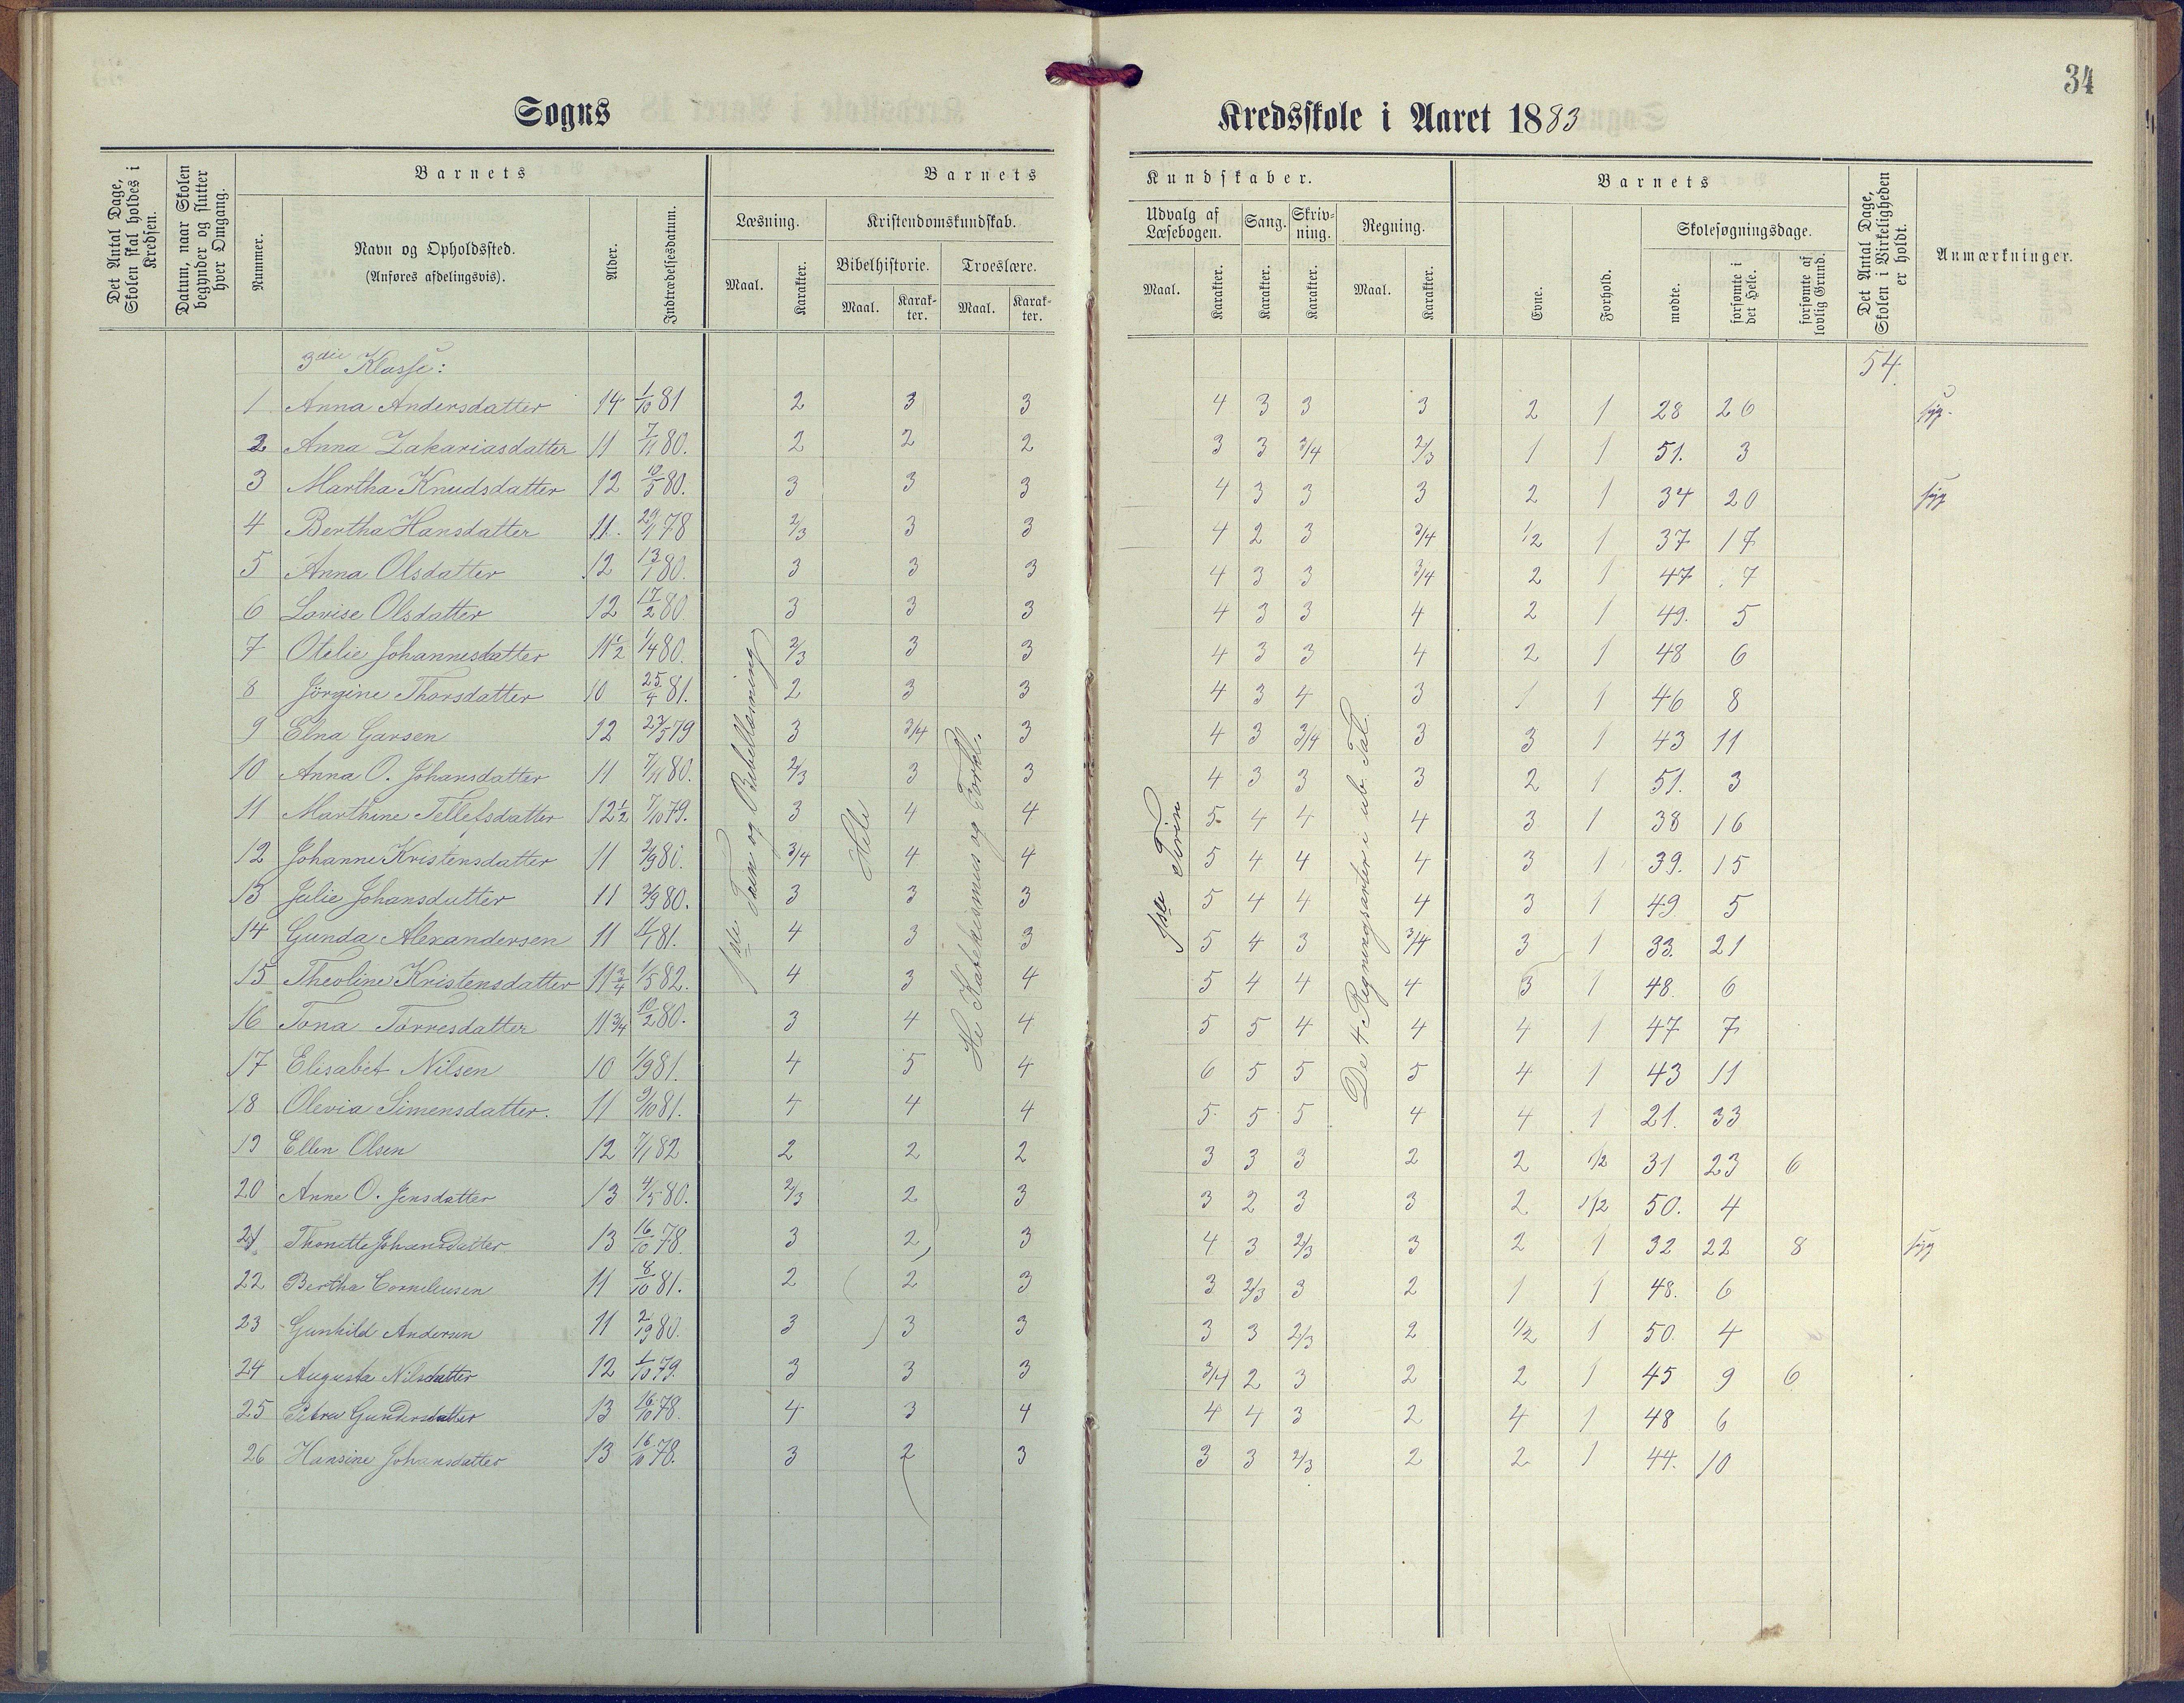 34
Sogns
Kredsskole i Aaret 1883
Det Antal Dage, Skolen skal holdes i Kredsen.
Datum, naar Skolen begynder og slutter hver Omgang.
Barnets
Nummer.
Navn og Opholdssted.
(Anføres afdelingsvis).
Alder.
Indtrædelsesdatum.
Barnets
Læsning.
Maal.
Karakter.
Kristendomskundskab.
Bibelhistorie.
Maal.
Karakter.
Troeslære.
Maal.
Karakter.
Kundskaber.
Udvalg af Læsebogen.
Maal.
Karakter.
Sang.
Karakter.
Skrivning.
Karakter.
Regning.
Maal.
Karakter.
Barnets
Evne.
Forhold.
Skolesøgningsdage.
mødte.
forsømte i det Hele.
forsømte af lovlig Grund.
Det Antal Dage, Skolen i Virkeligheden er holdt.
Anmærkninger.
3die Klasse: 54.
1 Anna Andersdatter 14 1/10 81 2 3 3 4 3 3 3 2 1 28 26 syg.
2 Anna Zakariasdatter 11 7/11 80. 2 2 2 3 3 3/4 2/3 1 1 51. 3
3 Martha Knudsdatter 12 80. 3 3 3 4 3 3 3 2 1 34 20 syg
4 Bertha Hansdatter 11. 78 2/3 3 3 4 2 3 3/4 1/2 1 37 17
5 Anna Olsdatter 12 13/1 80. 3 3 3 4 3 3 3/4 2 1 47 7
6 Lovise Olsdatter 12 17/2 80 3 3 3 4 3 3 4 2 1 49. 5
7 Otelie Johannesdatter 11 1/2 1/4 80. 2/3 3 3 4 3 3 4 2 1 48 6
8 Jørgine Thorsdatter 10 25/4 81. 2 3 3 4 3 4 3 1 1 46 8
9 Elna Garsen 12 23/5 79 3 3/4 3 4 3 3/4 3 3 1 43 11
10 Anna O. Johansdatter 11 7/11 80. 2/3 3 3 4 3 3 3 2 1 51. 3
11 Marthine Tellefsdatter 12 1/2 7/10 79. 3 4 4 5 4 4 4 3 1 38 16
12 Johanne Kristensdatter 11 2/9 80. 3/4 4 4 5 4 4 4 3 1 39. 15
13 Julie Johansdatter 11 80. 3 3 3 5 4 4 4 3 1 49 5
14 Gunda Alexandersen 11 81. 4 3 3 5 4 3 3/4 3 1 33. 21
15 Theoline Kristensdatter 11 3/4 1/5 82. 4 3 4 5 4 4 4 3 1 48. 6
16 Tona Tørresdatter 11 3/4 10/2 80. 3 4 4 5 5 4 4 4 1 47 7
17 Elisabet Nilsen 10 1/9 81. 4 5 4 6 5 5 5 4 1 43 11
18 Olevia Simensdatter. 11 3/10 81. 4 4 4 5 5 5 4 4 1 21. 33
19 Ellen Olsen 12 7/1 82 2 2 2 3 3 3 2 2 1/2 31 23 6
20 Anne O. Jensdatter 13 4/5 80. 2/3 2 3 3 2 3 3 2 1/2 50. 4
21 Thonette Johansdatter 13 16/10 78. 3 2 3 4 3 2/3 3 2 1 32 22 8 syg
22 Bertha Corneliusen 11 8/10 81. 2 2 3 3 2/3 3 2 1 1 48. 6
23 Gunhild Andersen 11 80. 3 3 3 3 3 2/3 2 1/2 1 50. 4
24 Augusta Nilsdatter 12 1/10 79. 3 3 3 3/4 2 3 2 2 1 45 9 6
25 Petra Gundersdatter 13 16/10 78. 4 3 4 4 4 3 2 4 1 48 6
26 Hansine Johansdatter 13 16/10 78. 3 2 3 3 3 2/3 2 2 1 44. 10
1ste Trin og Bibellæsning
Hele
Katekismus og Forkl.
1ste Trin
De 4 Regningsarter i ub. Tal.